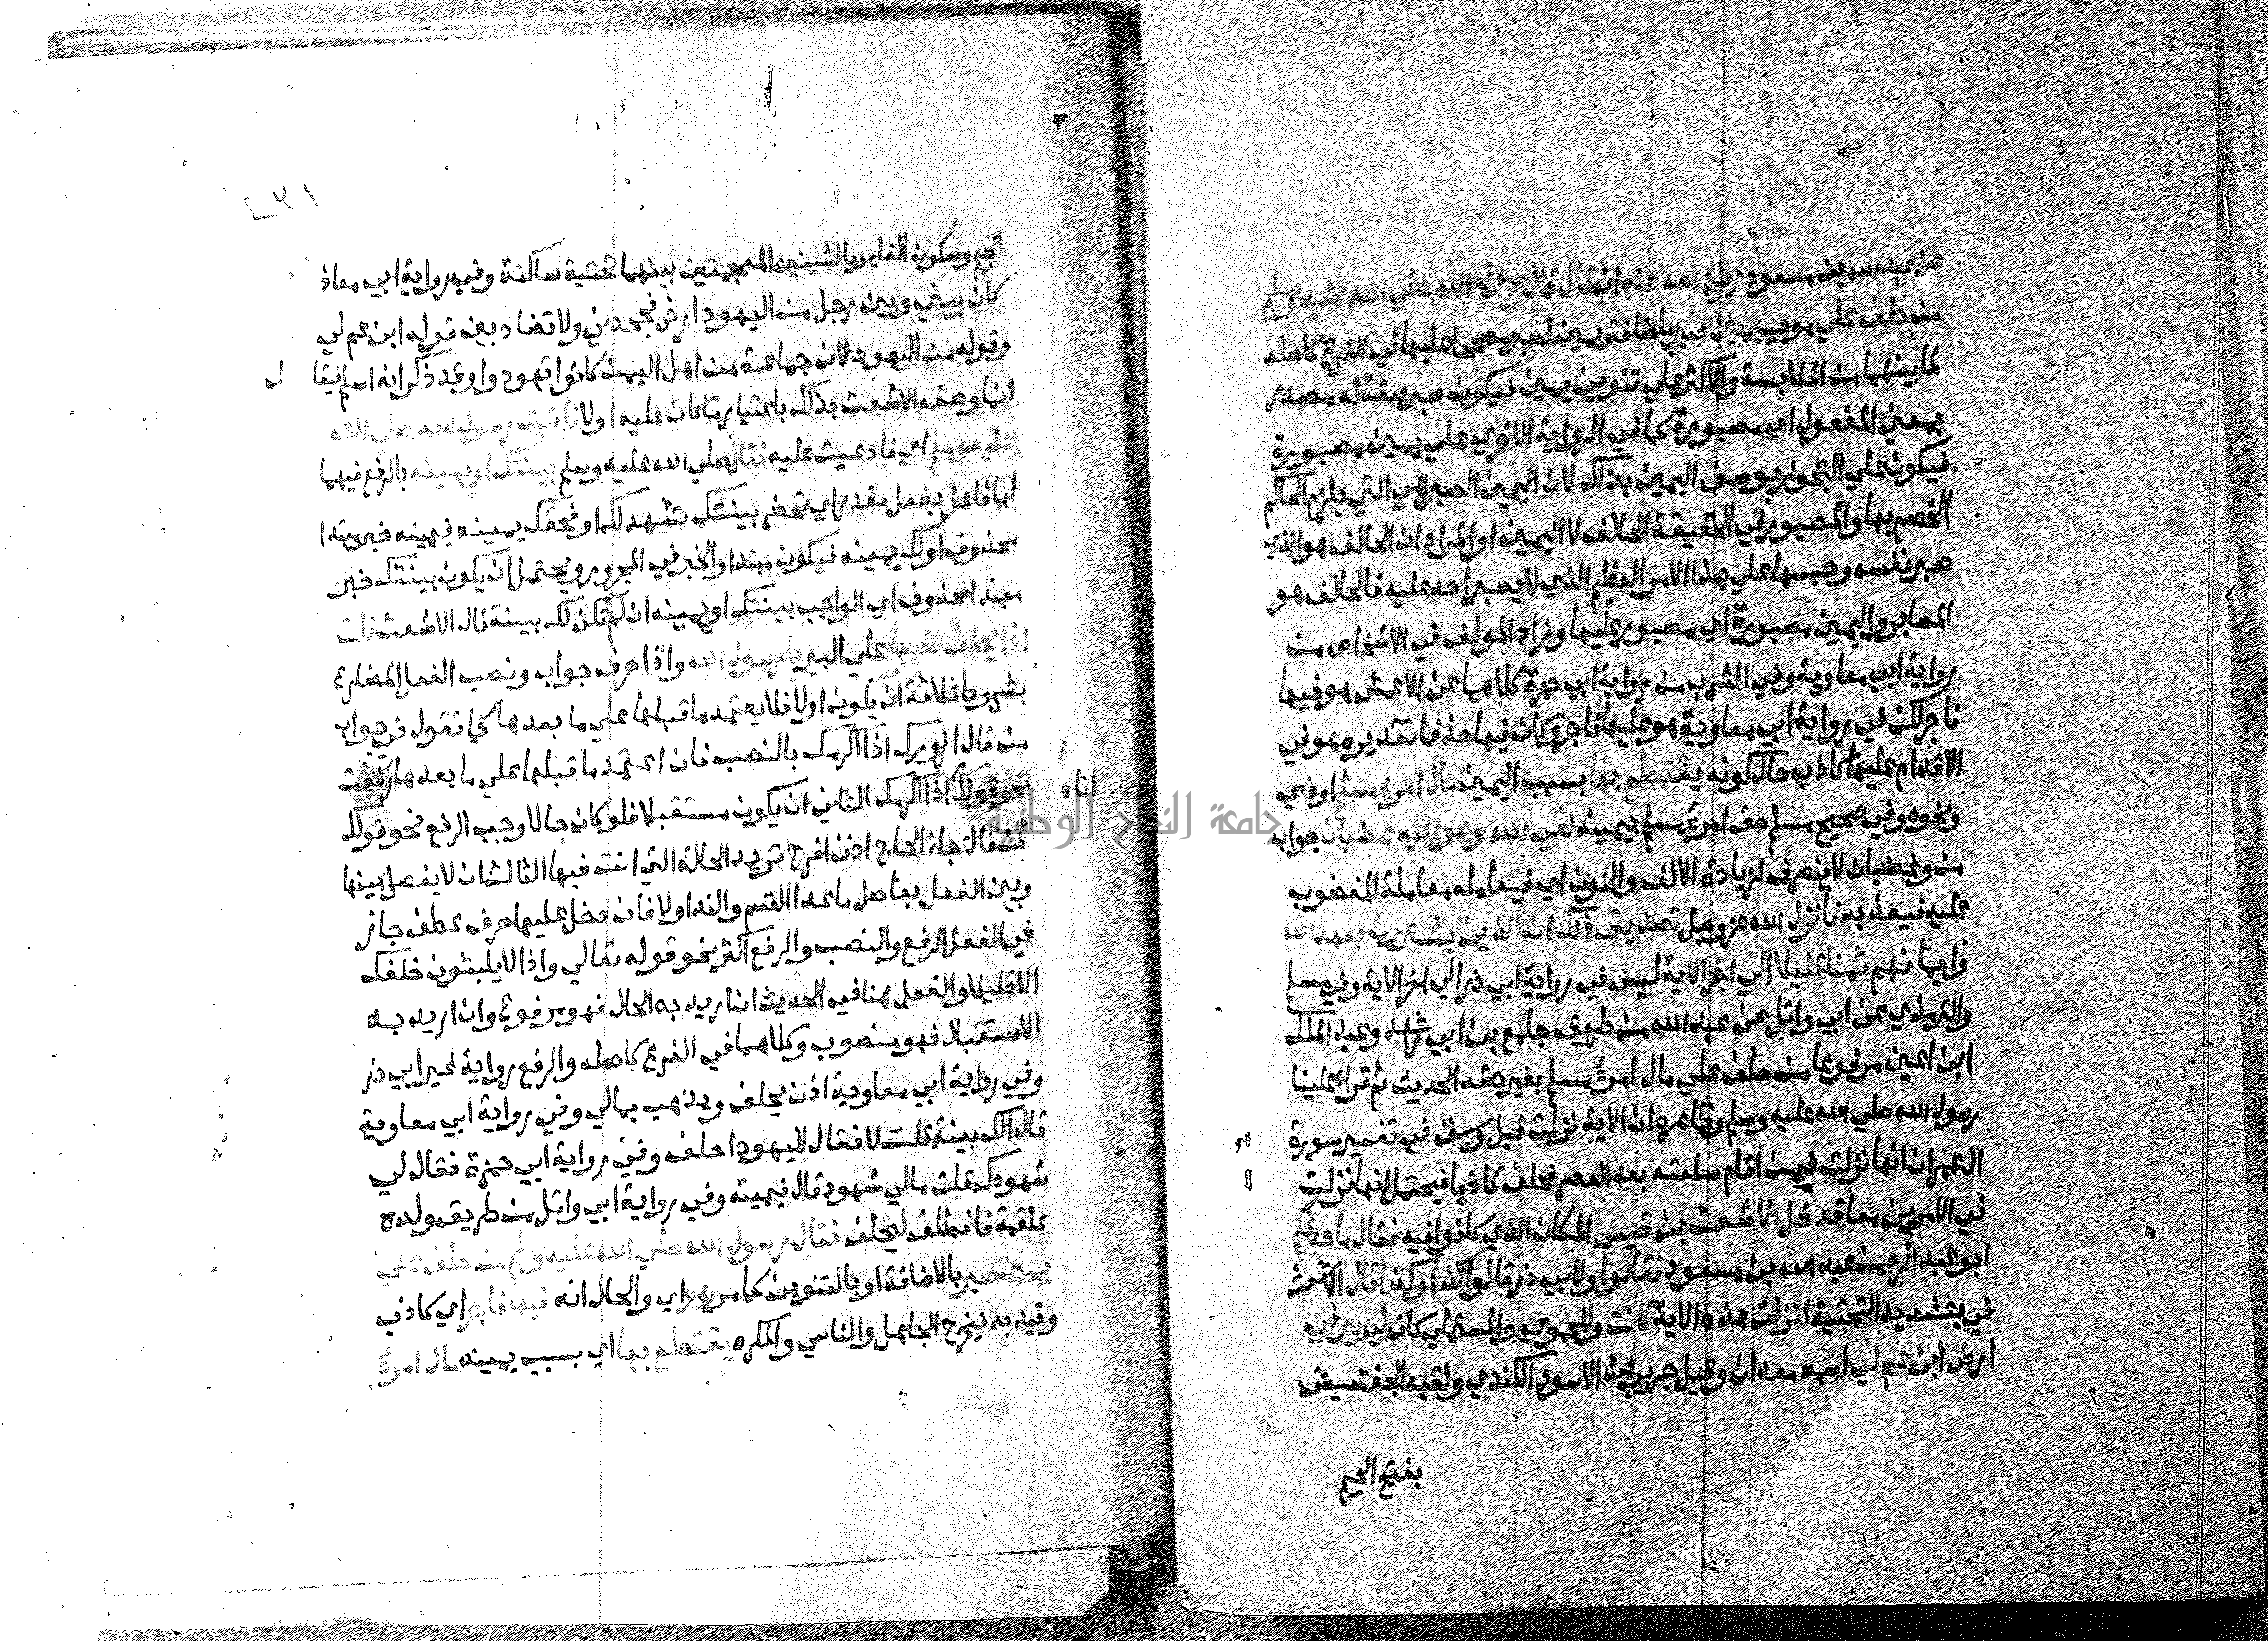 عن عبد الله بن مسعود رضي الله عنه انه قال قال رسول الله صلي الله عليه وسلم
من حلف علي يمين صبر باضافة يمين لصبر مصححا عليها في الفرع كاصله
لما بينهما من الملابسة والاكثر علي تنوين يمين فيكون صبر صفة له مصدر
بمعني المفعول اي مصبورة كما في الرواية الاخري علي يمين مصبورة
فيكون علي التجوز بوصف اليمين بذلك لان اليمين الصبر هي التي يلزم الحاكم
الخصم بها والمصبور في الحقيقة الحالف لا اليمين او المراد ان الحالف هو الذي
صبر نفسه وحبسها علي هذا الامر العظيم الذي لا يصبر احد عليه فالحالف هو
الصابر واليمين مصبورة اي مصبور عليها وزاد المولف في الاشخاص من
رواية ابي معاوية وفي الشرب من رواية ابي حمزة كلاهما عن الاعمش هو فيها
فاجر لكن في رواية ابي معاوية هو عليها فاجر وكان فيها حذفا تقديره هو في
الاقدام عليها كاذب حال كونه يقتطع بها بسبب اليمين مال امرئ مسلم او ذمي
ونحوه وفي صحيح مسلم حق امرئ مسلم بيمينه لقي الله وهو عليه غضبان جواب
من وغضبان لا ينصرف لزيادة الالف والنون اي فيعامله معاملة المغضوب
عليه فيعذبه فانزل الله عز وجل تصديق ذلك ان الذين يشترون بعهد الله
وايمانهم ثمنا قليلا الي اخر الاية ليس في رواية ابي ذر الي اخر الاية وفي مسلم
والترمذي عن ابي وائل عن عبد الله من طريق جامع بن ابي راشد وعبد الملك
ابن اعين مرفوعا من حلف علي مال امرئ مسلم بغير حقه الحديث ثم قرا علينا
رسول الله صلي الله عليه وسلم وظاهره ان الاية نزلت قبل وسبق في تفسير سورة
ال عمران انها نزلت فيمن اقام سلعته بعد العصر فحلف كاذبا فيحتمل انها نزلت
في الامرين معا فدخل الاشعث بن قيس المكان الذي كانوا فيه فقال ما حدثكم
ابو عبد الرحمن عبد الله بن مسعود فقالوا ولابي ذر قالوا كذا وكذا قال الاشعث
في بتشديد التحتية انزلت هذه الاية كانت وللحموي والمستملي كان لي بير في
ارض ابن عم لي اسمه معدان وقيل جرير بن الاسود الكندي ولقبه الجفشيش
بفتح الجيم
٤٣١
الجيم وسكون الفاء وبالشينين المعجمتين بينهما تحتية ساكنة وفي رواية ابي معاذ
كان بيني وبين رجل من اليهود ارض فجحدني ولا تضاد بين قوله ابن عم لي
وقوله من اليهود لان جماعة من اهل اليمن كانوا تهودوا وقد ذكر انه اسلم فيقال
انما وصفه الاشعث بذلك باعتبار ما كان عليه اولا فاتيت رسول الله صلي الله
عليه وسلم اي فادعيت عليه فقال صلي الله عليه وسلم بينتك او يمينه بالرفع فيهما
اما فاعل بفعل مقدر اي تحضر بينتك تشهد لك او فحقك يمينه فيمينه خبر مبتدا
محذوف او لك يمينه فيكون مبتدا والخبر في المجرور ويحتمل ان يكون بينتك خبر
مبتدا محذوف اي الواجب بينتك او يمينه ان لم تكن لك بينة قال الاشعث قلت
اذا يحلف عليها علي البير يا رسول الله واذا حرف جواب ونصب الفعل المضارع
بشروط ثلاثة ان يكون اولا فلا يعتمد ما قبلها علي ما بعدها كما تقول في جواب
من قال ازورك اذا اكرمك بالنصب فان اعتمد ما قبلها علي ما بعدها رفعت
نحو قولك انا اذا اكرمك الثاني ان يكون مستقبلا فلو كان حالا وجب الرفع نحو قولك
لمن قال جاء الحاج اذن افرح تريد الحالة التي انت فيها الثالث ان لا يفصل بينها
وبين الفعل بفاصل ما عدا القسم والندا ولا فان دخل عليها حرف عطف جاز
في الفعل الرفع والنصب والرفع اكثر نحو قوله تعالي واذا لا يلبثون خلفك
الا قليلا والفعل هنا في الحديث ان اريد به الحال فهو مرفوع وان اريد به
الاستقبال فهو منصوب وكلاهما في الفرع كاصله والرفع رواية غير ابي ذر
وفي رواية ابي معاوية اذن يحلف ويذهب بمالي وفي رواية ابي معاوية
قال الك بينة قلت لا فقال لليهودي احلف وفي رواية ابي حمزة فقال لي
شهودك قلت مالي شهود قال فيمينه وفي رواية ابي وائل من طريق ولده
علقمة فانطلق ليحلف فقال رسول الله صلي الله عليه وسلم من حلف علي
يمين صبر بالاضافة او بالتنوين كما مر وهو اي والحال انه فيها فاجر اي كاذب
وقيد به ليخرج الجاهل والناسي والمكره يقتطع بها اي بسبب يمينه مال امرئ
جامعة النجاح الوطنية